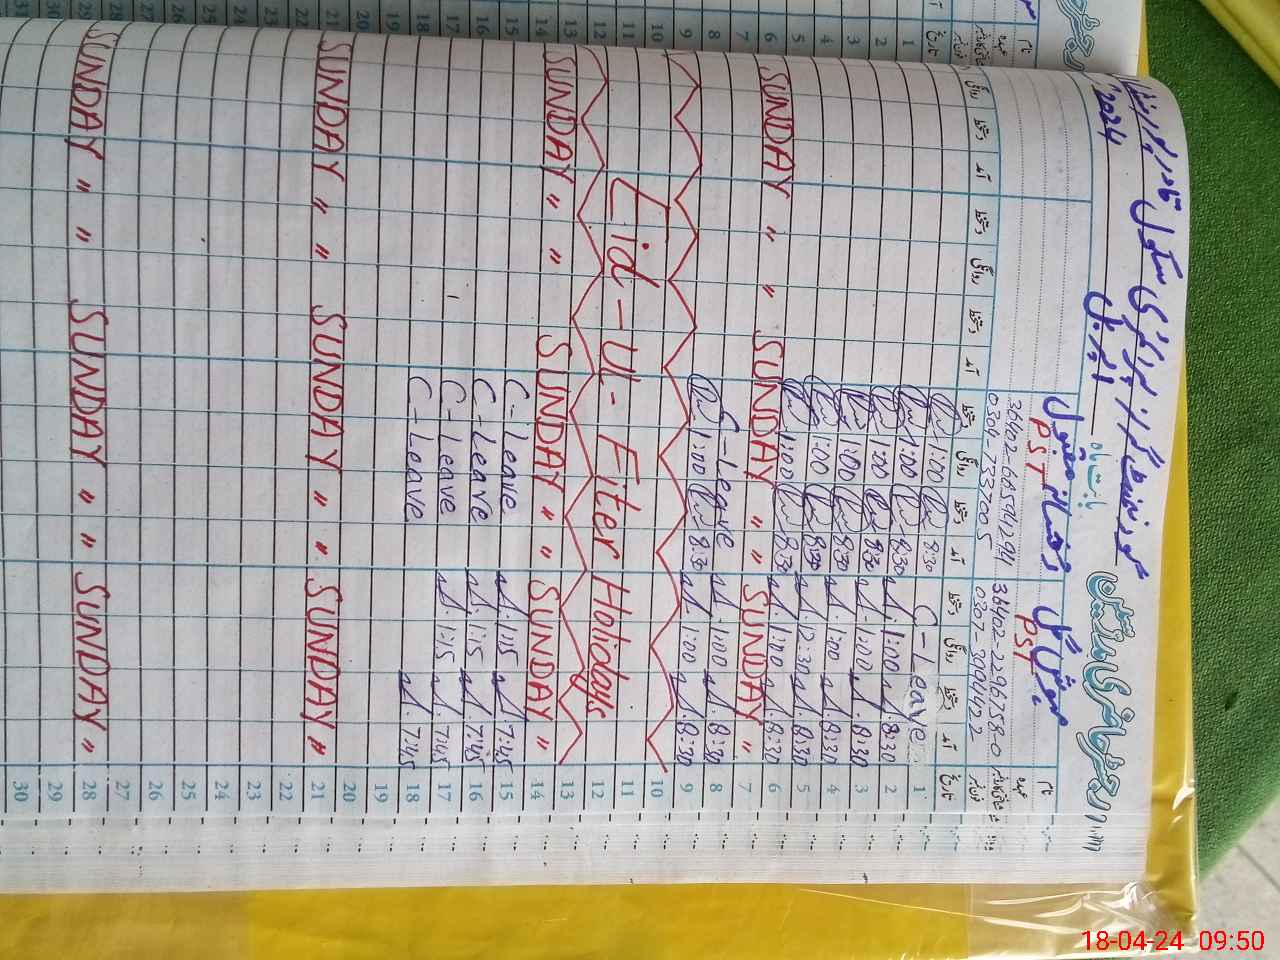 رجسٹر حاضری مدرسین
گورنمنٹ گرلز پرائمری سکول
بابت ماہ اپریل 2024
نام
عہدہ
تاریخ
PST
PST
36402-2296758-0
0307-3994422
36402-6659429-4
0304-7337005
آمد دستخط روانگی دستخط آمد دستخط روانگی دستخط
1 C-Leave 8:30 1:00
2 8:30 1:00 8:30 1:00
3 8:30 1:00 8:30 1:00
4 8:30 1:00 8:30 1:00
5 8:30 12:30 8:30 1:00
6 8:30 1:00 8:30 1:00
7 SUNDAY " SUNDAY " " SUNDAY " "
8 8:30 1:00 C-Leave
9 8:30 1:00 8:30 1:00
10
11 Eid-Ul-Fiter Holidays
12
13
14 SUNDAY " SUNDAY " " SUNDAY " "
15 7:45 1:15 C-Leave
16 7:45 1:15 C-Leave
17 7:45 1:15 C-Leave
18 7:45 C-Leave
19
20
21 SUNDAY " SUNDAY " " SUNDAY " "
22
23
24
25
26
27
28 SUNDAY " SUNDAY " " SUNDAY " "
29
30
18-04-24 09:50